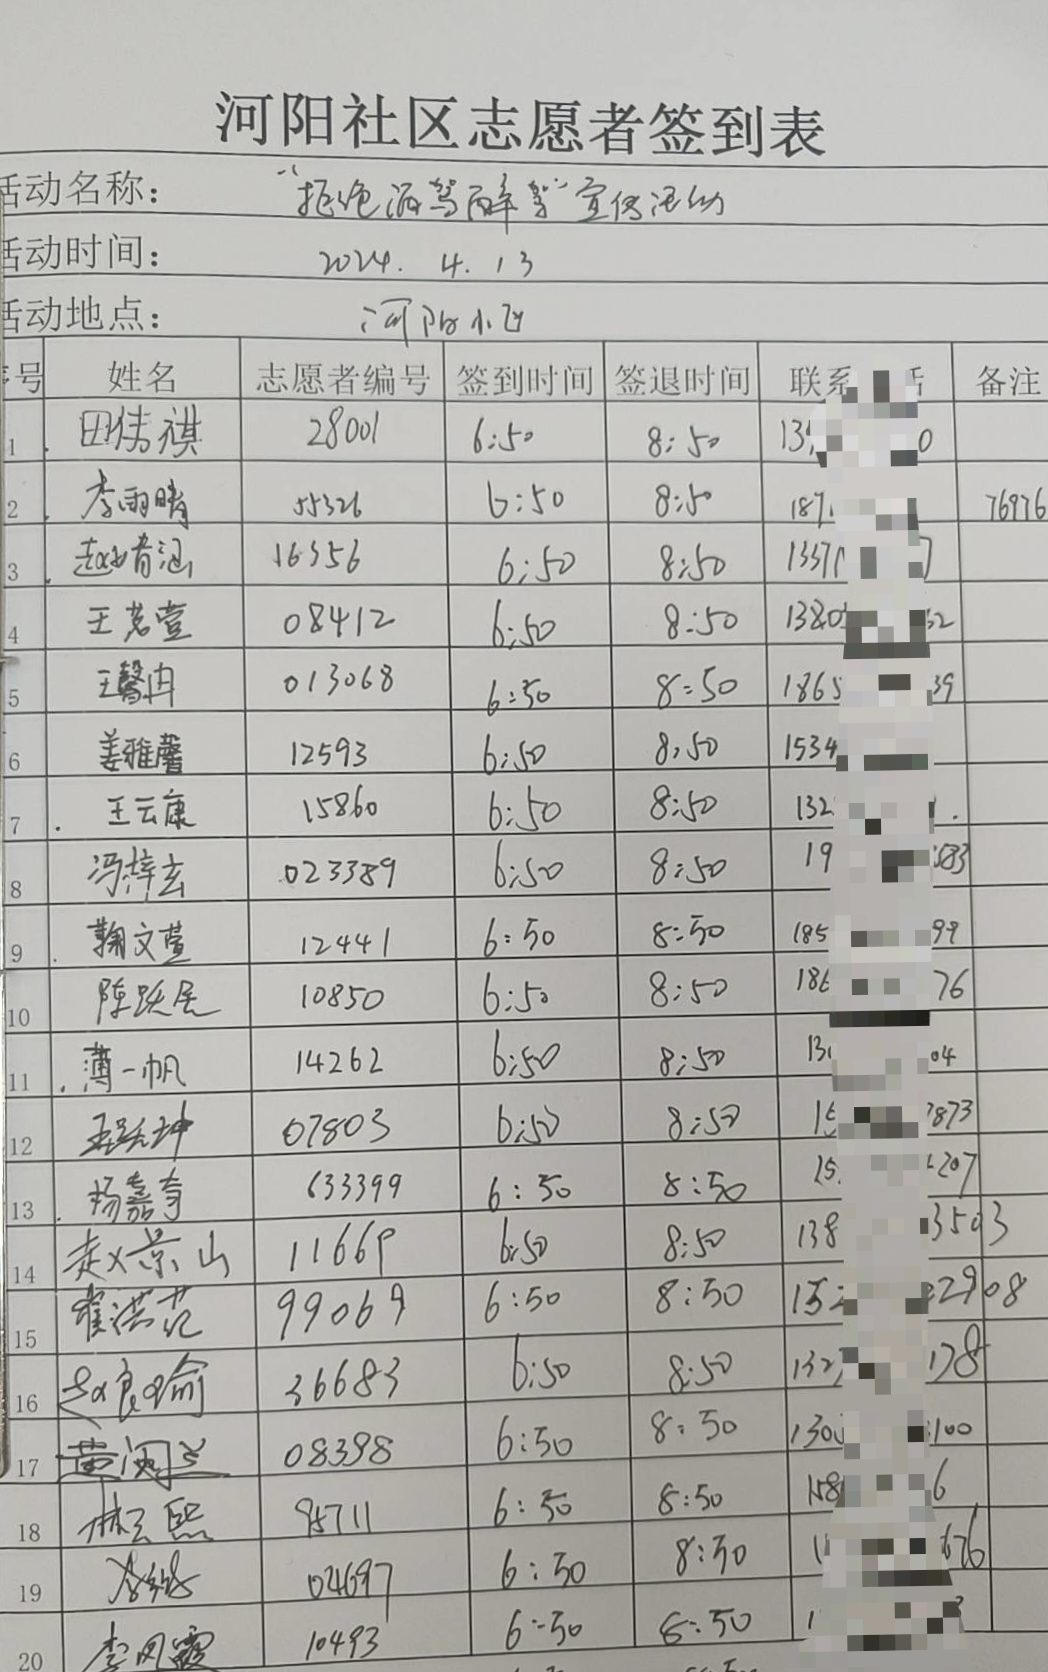 河阳社区志愿者签到表
活动名称: "拒绝酒驾醉驾"宣传活动
活动时间: 2024.4.13
活动地点: 河阳小区
序号 姓名 志愿者编号 签到时间 签退时间 联系 话 备注
1 田伟祺 28001 6:50 8:50 0
2 李雨晴 55326 6:50 8:50 187 76976
3 赵肖涵 16356 6:50 8:50 1337
4 王茗萱 08412 6:50 8:50 1380 32
5 王馨冉 013068 6:50 8:50 1865 39
6 姜雅馨 12593 6:50 8:50 1534
7 王云康 15860 6:50 8:50 132
8 冯梓玄 023389 6:50 8:50 19 583
9 翰文萱 12441 6:50 8:50 185 99
10 陈跃 10850 6:50 8:50 186 76
11 薄一帆 14262 6:50 8:50 13 04
12 07803 6:50 8:50 15 7873
13 杨嘉奇 633399 6:50 8:50 15 207
14 赵景山 11669 6:50 8:50 138 3503
15 崔洪范 99069 6:50 8:50 152 2908
16 赵良瑜 36683 6:50 8:50 132 178
17 黄闽兰 08398 6:50 8:50 130 100
18 林云熙 95711 6:50 8:50 158 6
19 04697 6:50 8:50 1 676
20 李凤霞 10493 6:50 8:50 1